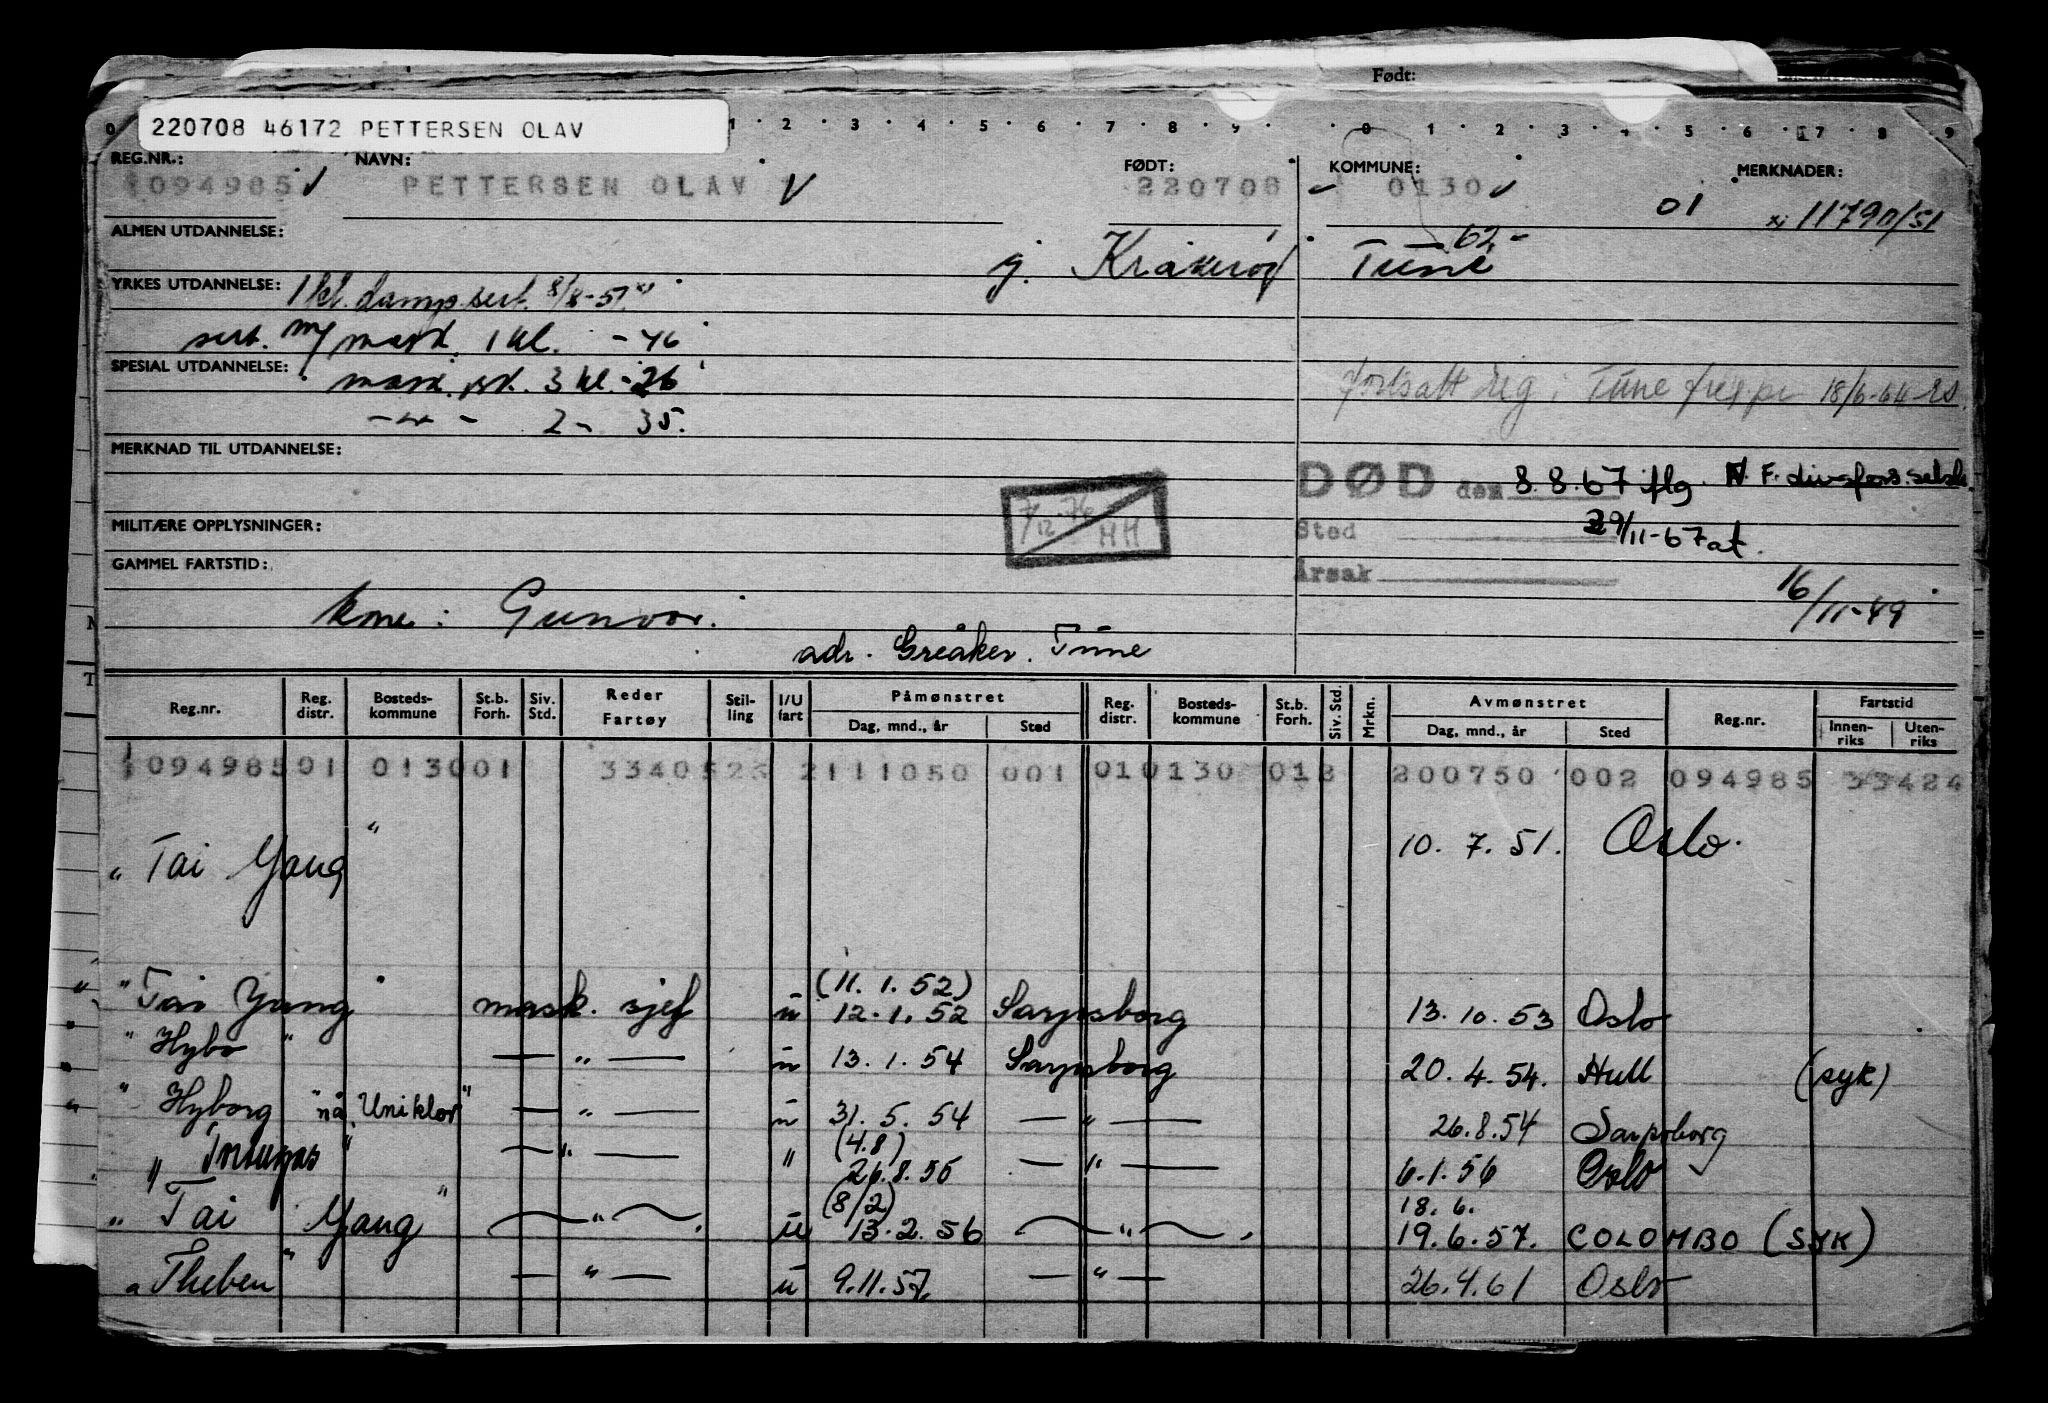 Født:
220708 46172 PETTERSEN OLAV
0 1 2 3 4 5 6 7 8 9 0 1 2 3 4 5 6 7 8 9
REG.NR.: NAVN: FØDT: KOMMUNE: MERKNADER:
094985 PETTERSEN OLAV 220708 0130 01 11790/51
ALMEN UTDANNELSE: g. Kråkerøy Tune 62-
YRKES UTDANNELSE: 1 kl. damp sert. 8/8-51 x)
sert. m/ mask. 1 kl. - 46
SPESIAL UTDANNELSE: mask. 3 kl. - 26
fortsatt reg i Tune 18/6-64
-"- 2 - 35.
MERKNAD TIL UTDANNELSE:
DØD den 8.8.67 iflg. N.F. livsfors.selsk.
7/12-76 HH
MILITÆRE OPPLYSNINGER:
Sted 29/11-67 at.
GAMMEL FARTSTID:
Årsak
16/11-49
kone: Gunvor.
adr. Greåker. Tune
Reg.nr. Reg. distr. Bosteds-kommune St.b. Forh. Siv. Std. Reder Fartøy Stil-ling I/U fart Påmønstret Dag, mnd., år Sted Reg. distr. Bosteds-kommune St.b. Forh. Siv. Std. Mrkn. Avmønstret Dag, mnd., år Sted Reg.nr. Fartstid Innen-riks Uten-riks
094985 01 0130 01 3340 523 2 111050 001 01 0130 01 2 200750 002 094985 33424
" Tai Yang " 10.7.51. Oslo.
(11.1.52)
" Tai Yang " mask. sjef u 12.1.52 Sarpsborg 13.10.53 Oslo
" Hybo " — " — u 13.1.54 Sarpsborg 20.4.54. Hull (syk)
" Hyborg " nå "Uniklor" — " — u 31.5.54 — " — 26.8.54 Sarpsborg
(4.8)
" — " — " 26.8.55 — " — 6.1.56 Oslo
(8/2) 18.6.
" Tai Yang " — " — u 13.2.56 — " — 19.6.57. COLOMBO (SYK)
" Theben " — " — u 9.11.57. — " — 26.4.61 Oslo